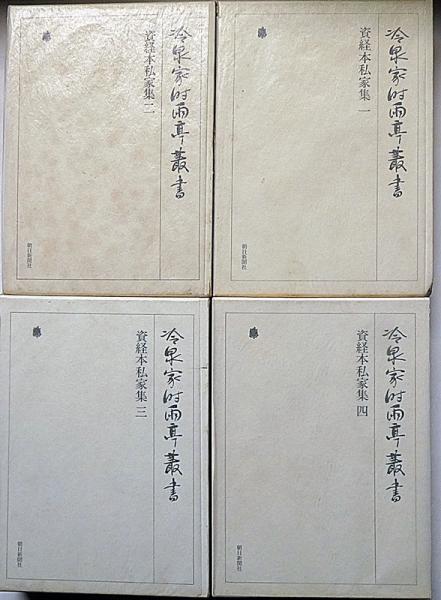 冷泉家时雨亭叢書
資経本私家集 一
朝日新聞社
冷泉家时雨亭叢書
資経本私家集 二
朝日新聞社
冷泉家时雨亭叢書
資経本私家集 三
朝日新聞社
冷泉家时雨亭叢書
資経本私家集 四
朝日新聞社